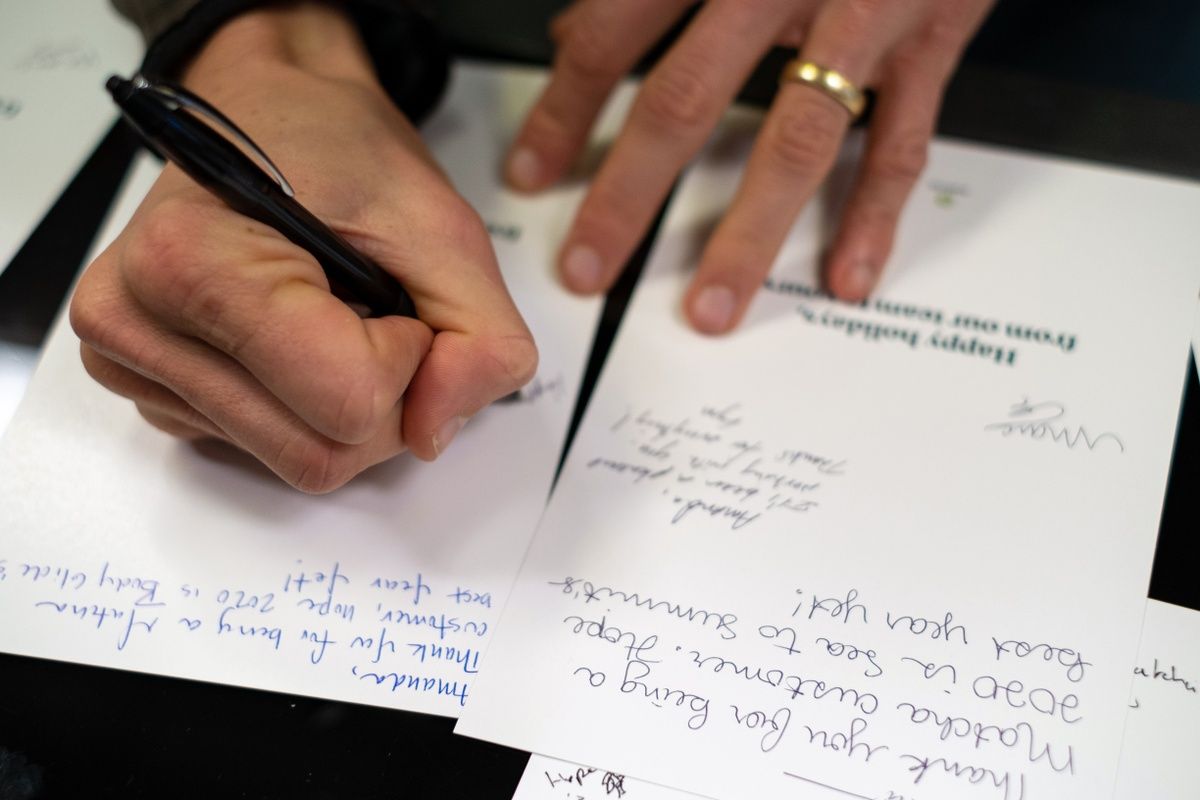 Happy holidays,
from our team to yours
Amanda,
It's been a pleasure
working with you.
Thanks for everything!
Thank you for being a
Matcha customer. Hope
2020 is Sea to Summit's
best year yet!
Amanda,
Thank you for being a Matcha
customer, hope 2020 is Body Glide's
best year yet!